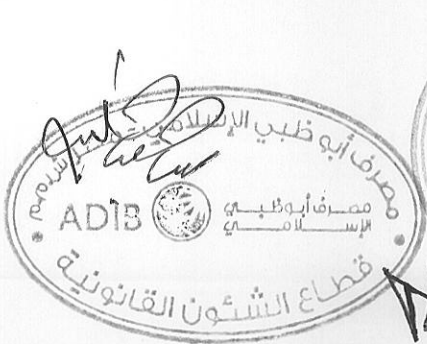 مصرف أبو ظبي الإسلامي
ADIB
مصرف أبوظبي
الإسلامي
قطاع الشئون القانونية